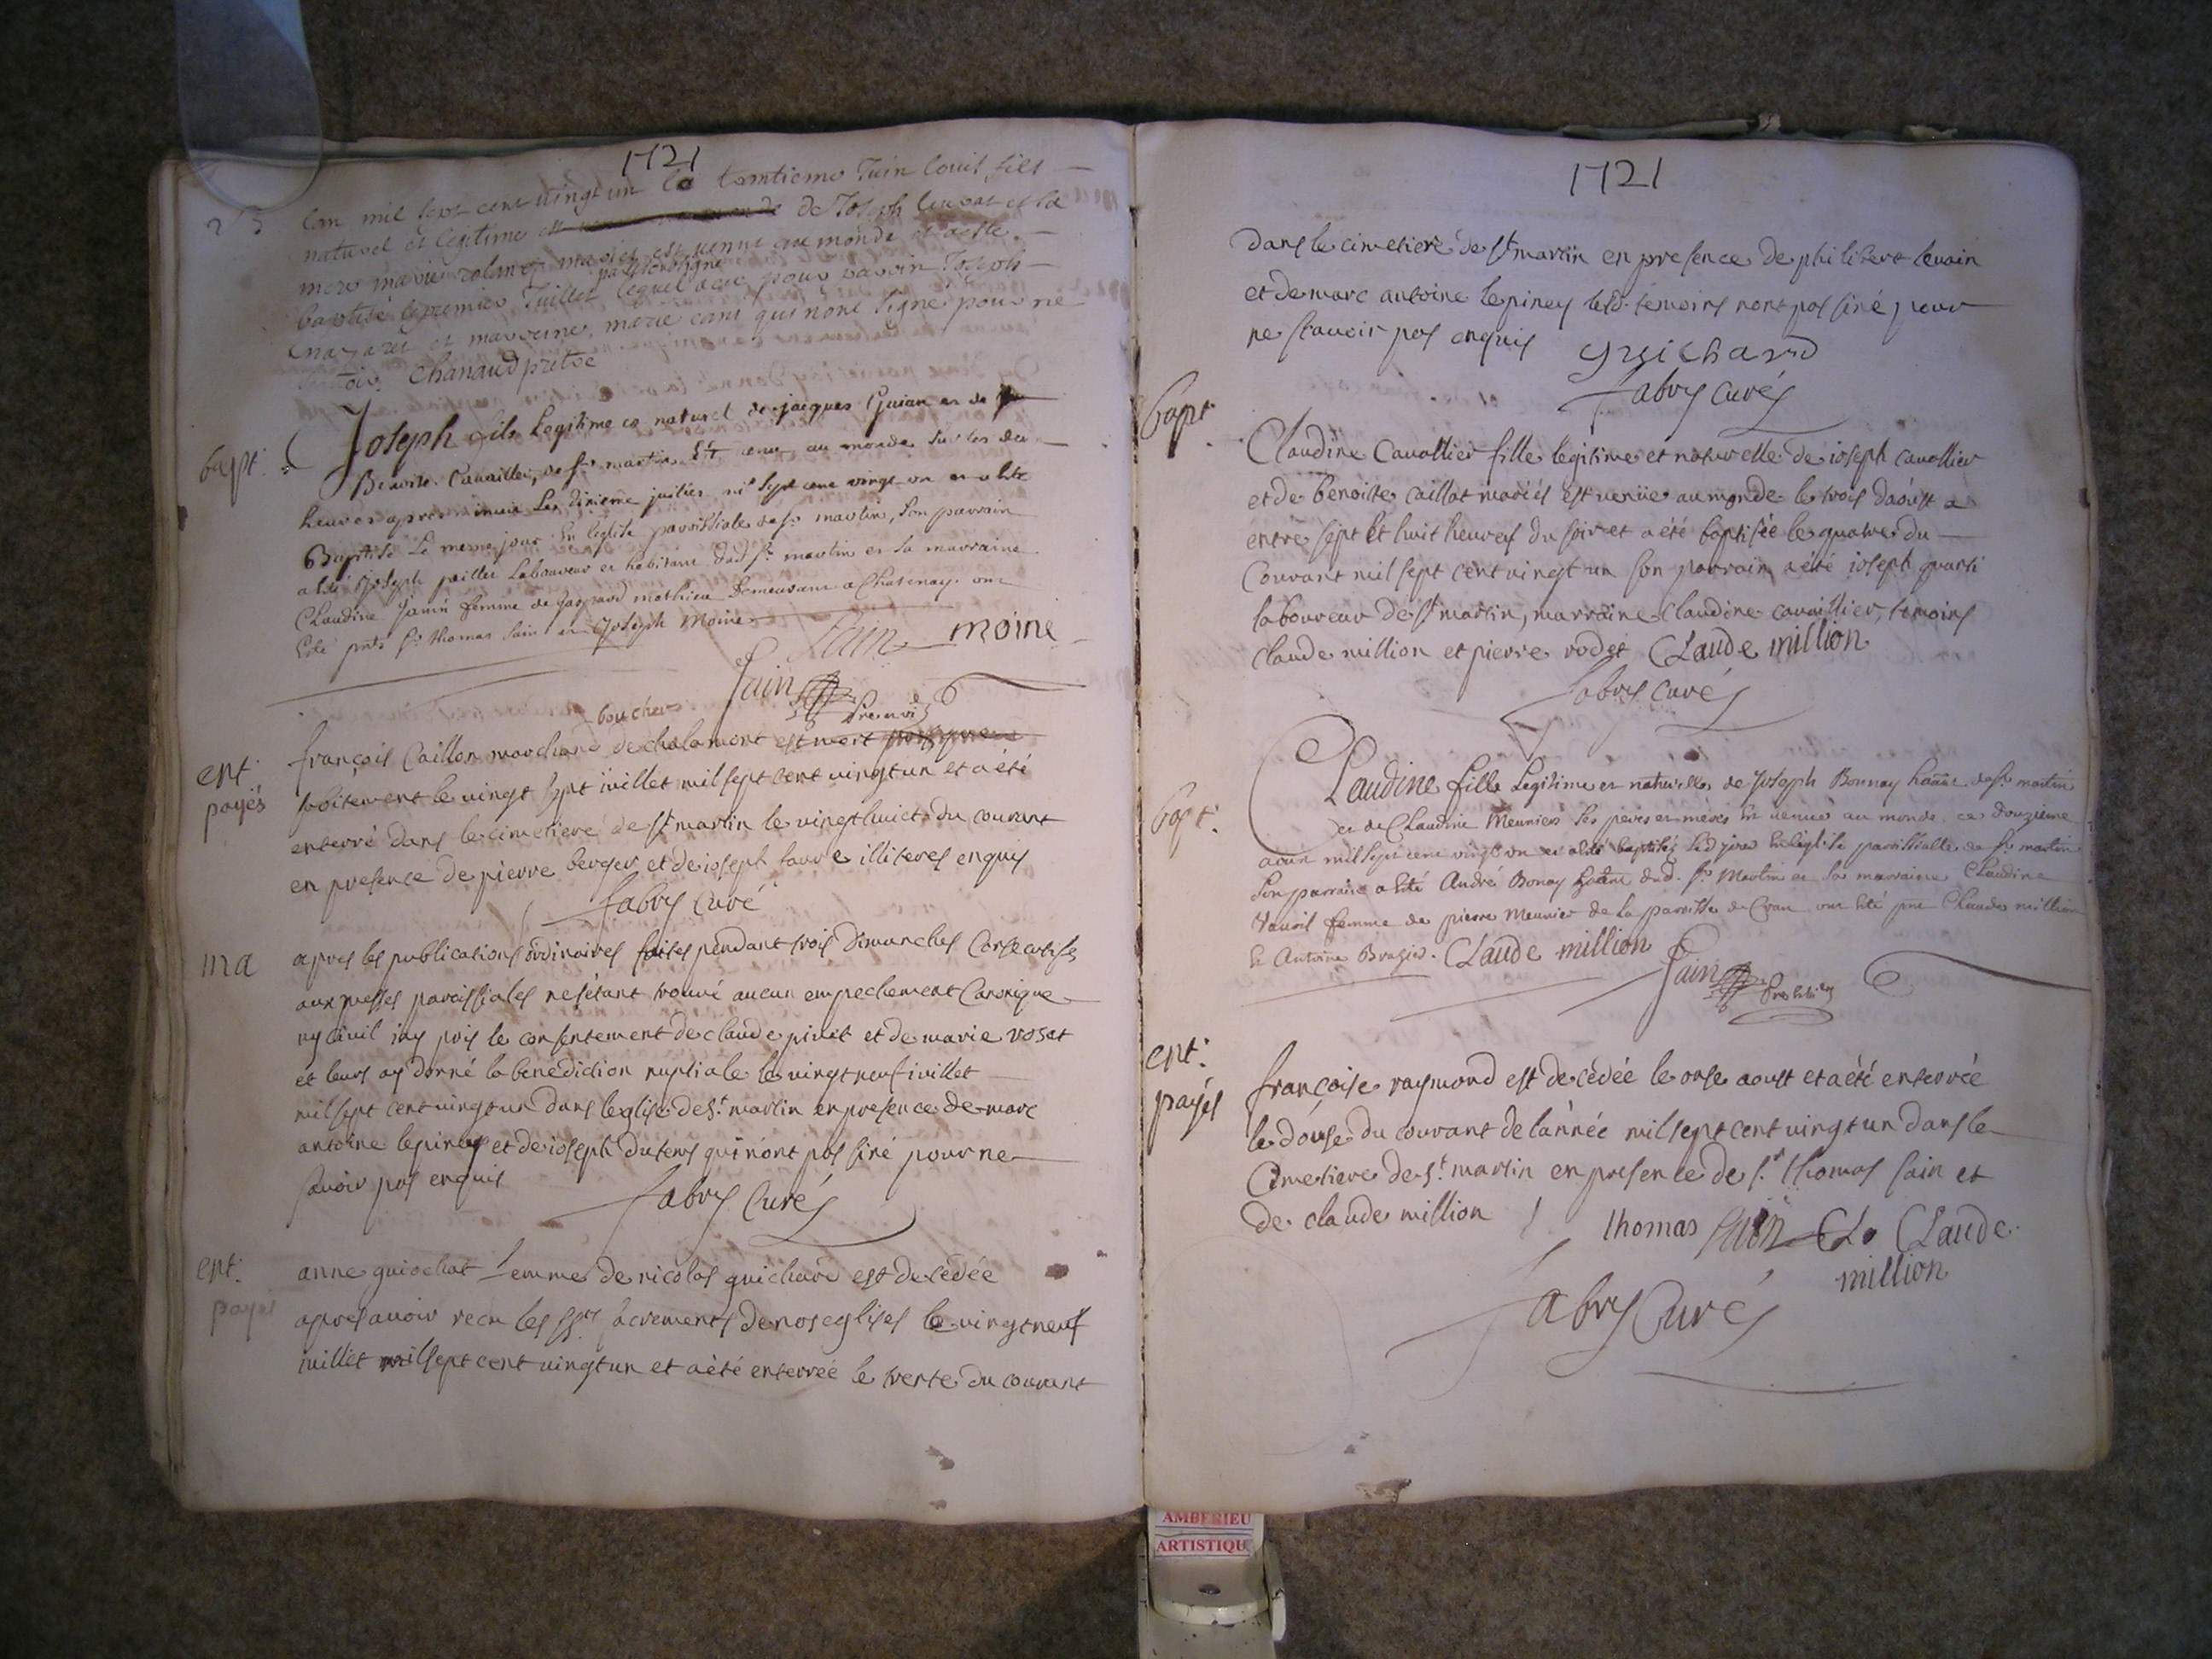 1721
Lan mil sept cent vingt un le trentieme Juin louis fils
naturel et legitime de Joseph et sa
mere marie mariés est venu au monde et a esté
par le soussigné
baptisé le premier Juillet lequel a eu pour parrain Joseph
et marreine marie qui nont signé pour ne
chanaud pretre
bapt:
Joseph fils Legitime et naturel de jacques Guian et de
Benoite Cavaillier, de st martin Est venu au monde sur les
heures apres minuit Le dixieme juillet mil sept cent vingt un et a ete
Baptisé Le meme jour En leglise parroissiale de st martin, son parrain
a été Joseph paillet Laboureur et habitant dud st. martin et sa marraine
Claudine Janin femme de Gaspard mathieu demeurant a Chatenay. ont
Esté pnts sr. thomas Sain et Joseph Moine
Sain moine
Sain
boucher
ent:
payés
françois Caillon marchand de chalamont est mort
subitement le vingt sept iuillet mil sept cent vingt un et a été
enterré dans le cimetiere de st martin le vingt huict du courant
en presence de pierre berger et de ioseph faure illiteres enquis
fabry curé
ma
apres les publications ordinaires faites pendant trois dimanches Consecutifs
aux messes paroissiales ne sétant trouvé aucun empechement Canonique
ny Civil iay pris le consentement de claude pivet et de marie roset
et leurs ay donné la benediction nuptiale le vingt neuf iuillet
mil sept cent vingt un dans leglise de st. martin en presence de marc
antoine lepiney et de ioseph dutens qui nónt pas siné pour ne
savoir pas enquis
fabry Curés
ent:
payés
anne guiochat femme de nicolas guichard est decédée
apres avoir recu les sts sacrements de nos eglises le vingt neuf
iuillet mil sept cent vingt un et a été enterrée le trente du courant
1721
dans le cimetiere de st martin en presence de philibert levain
et de marc antoine lepiney lesd. temoins nont pas siné pour
ne scavoir pas enquis
guichard
fabry curés
bapt
Claudine Cavallier fille legitime et naturelle de ioseph cavallier
et de benoite caillat mariés est venüe au monde le trois daóust
entre sept et huit heures du soir et a été baptisée le quatre du
Courant mil sept cent vingt un son parrain a été ioseph
laboureur de st martin, marraine claudine cavaillier, temoins
claude million et pierre rodet Claude million
fabry curés
bapt:
Claudine fille Legitime et naturelle de Joseph Bonnay de st martin
et de Claudine Meunier ses peres et meres Est venue au monde ce douzieme
aout mil sept cent vingt un et a été baptisée led jour En leglise parroissialle de st martin
son parrain a Eté André Bonay dud. st. Martin et sa marraine Claudine
femme de pierre Meunier de la parroisse de Cran ont Eté pnt Claude million
Et Antoine Brazier. Claude million
Sain
ent:
payés
françoise raymond est decédée le onse aoust et a été enterrée
le douse du courant de lánnée mil sept cent vingt un dans le
Cimetiere de st. martin en presence de sr. thomas sain et
de claude million
thomas Sain Claude
million
fabry Curés
AMBERIEU
ARTISTIQU